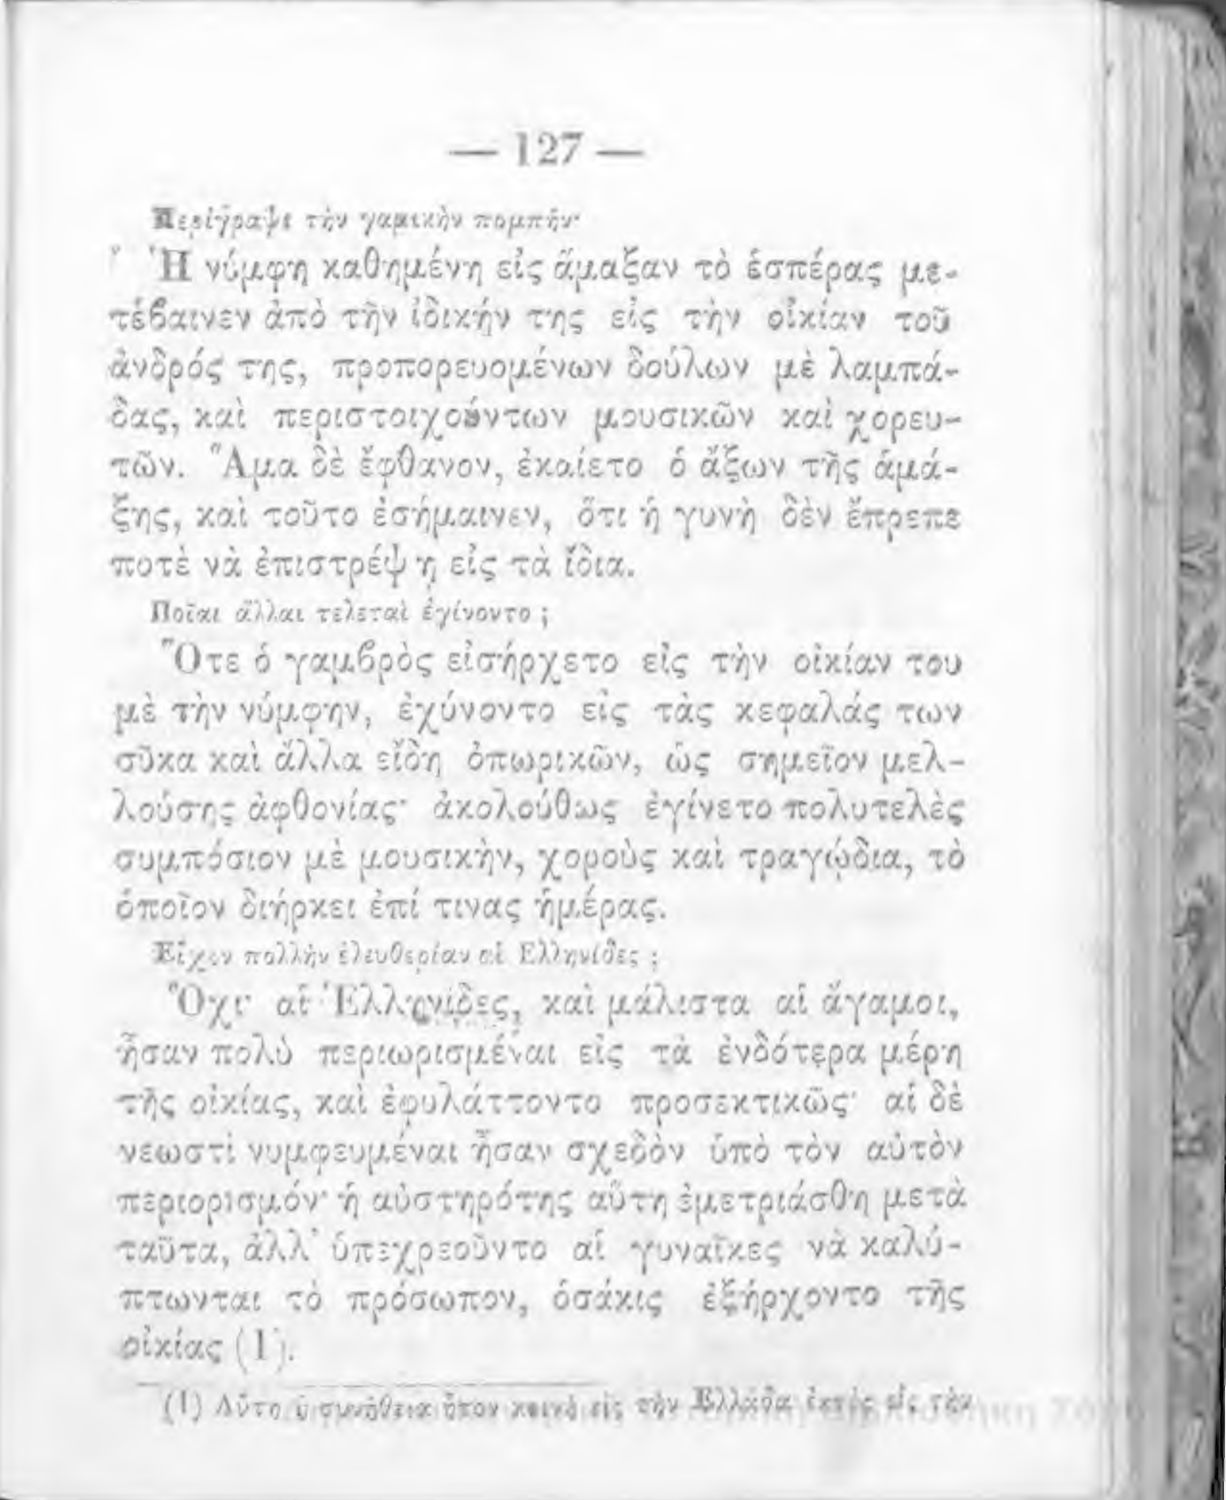 — 127 —
Περίγραψε τὴν γαμικὴν πομπήν·
Ἡ νύμφη καθημένη εἰς ἅμαξαν τὸ ἑσπέρας με-
τέβαινεν ἀπὸ τὴν ἰδικήν της εἰς τὴν οἰκίαν τοῦ
ἀνδρός της, προπορευομένων δούλων μὲ λαμπά-
δας, καὶ περιστοιχούντων μουσικῶν καὶ χορευ-
τῶν. Ἅμα δὲ ἔφθανον, ἐκαίετο ὁ ἄξων τῆς ἁμά-
ξης, καὶ τοῦτο ἐσήμαινεν, ὅτι ἡ γυνὴ δὲν ἔπρεπε
ποτὲ νὰ ἐπιστρέψῃ εἰς τὰ ἴδια.
Ποῖαι ἄλλαι τελεταὶ ἐγίνοντο ;
Ὅτε ὁ γαμβρὸς εἰσήρχετο εἰς τὴν οἰκίαν του
μὲ τὴν νύμφην, ἐχύνοντο εἰς τὰς κεφαλάς των
σῦκα καὶ ἄλλα εἴδη ὀπωρικῶν, ὡς σημεῖον μελ-
λούσης ἀφθονίας· ἀκολούθως ἐγίνετο πολυτελὲς
συμπόσιον μὲ μουσικὴν, χοροὺς καὶ τραγῴδια, τὸ
ὁποῖον διήρκει ἐπί τινας ἡμέρας.
Εἶχον πολλὴν ἐλευθερίαν αἱ Ἑλληνίδες ;
Ὄχι· αἱ Ἑλληνίδες, καὶ μάλιστα αἱ ἄγαμοι,
ἦσαν πολὺ περιωρισμέναι εἰς τὰ ἐνδότερα μέρη
τῆς οἰκίας, καὶ ἐφυλάττοντο προσεκτικῶς· αἱ δὲ
νεωστὶ νυμφευμέναι ἦσαν σχεδὸν ὑπὸ τὸν αὐτὸν
περιορισμόν· ἡ αὐστηρότης αὕτη ἐμετριάσθη μετὰ
ταῦτα, ἀλλ' ὑπεχρεοῦντο αἱ γυναῖκες νὰ καλύ-
πτωνται τὸ πρόσωπον, ὁσάκις ἐξήρχοντο τῆς
οἰκίας (1).
(1) Αὕτη ἡ συνήθεια ἦτον κοινὴ εἰς τὴν Ἑλλάδα ἐκτὸς εἰς τὴν